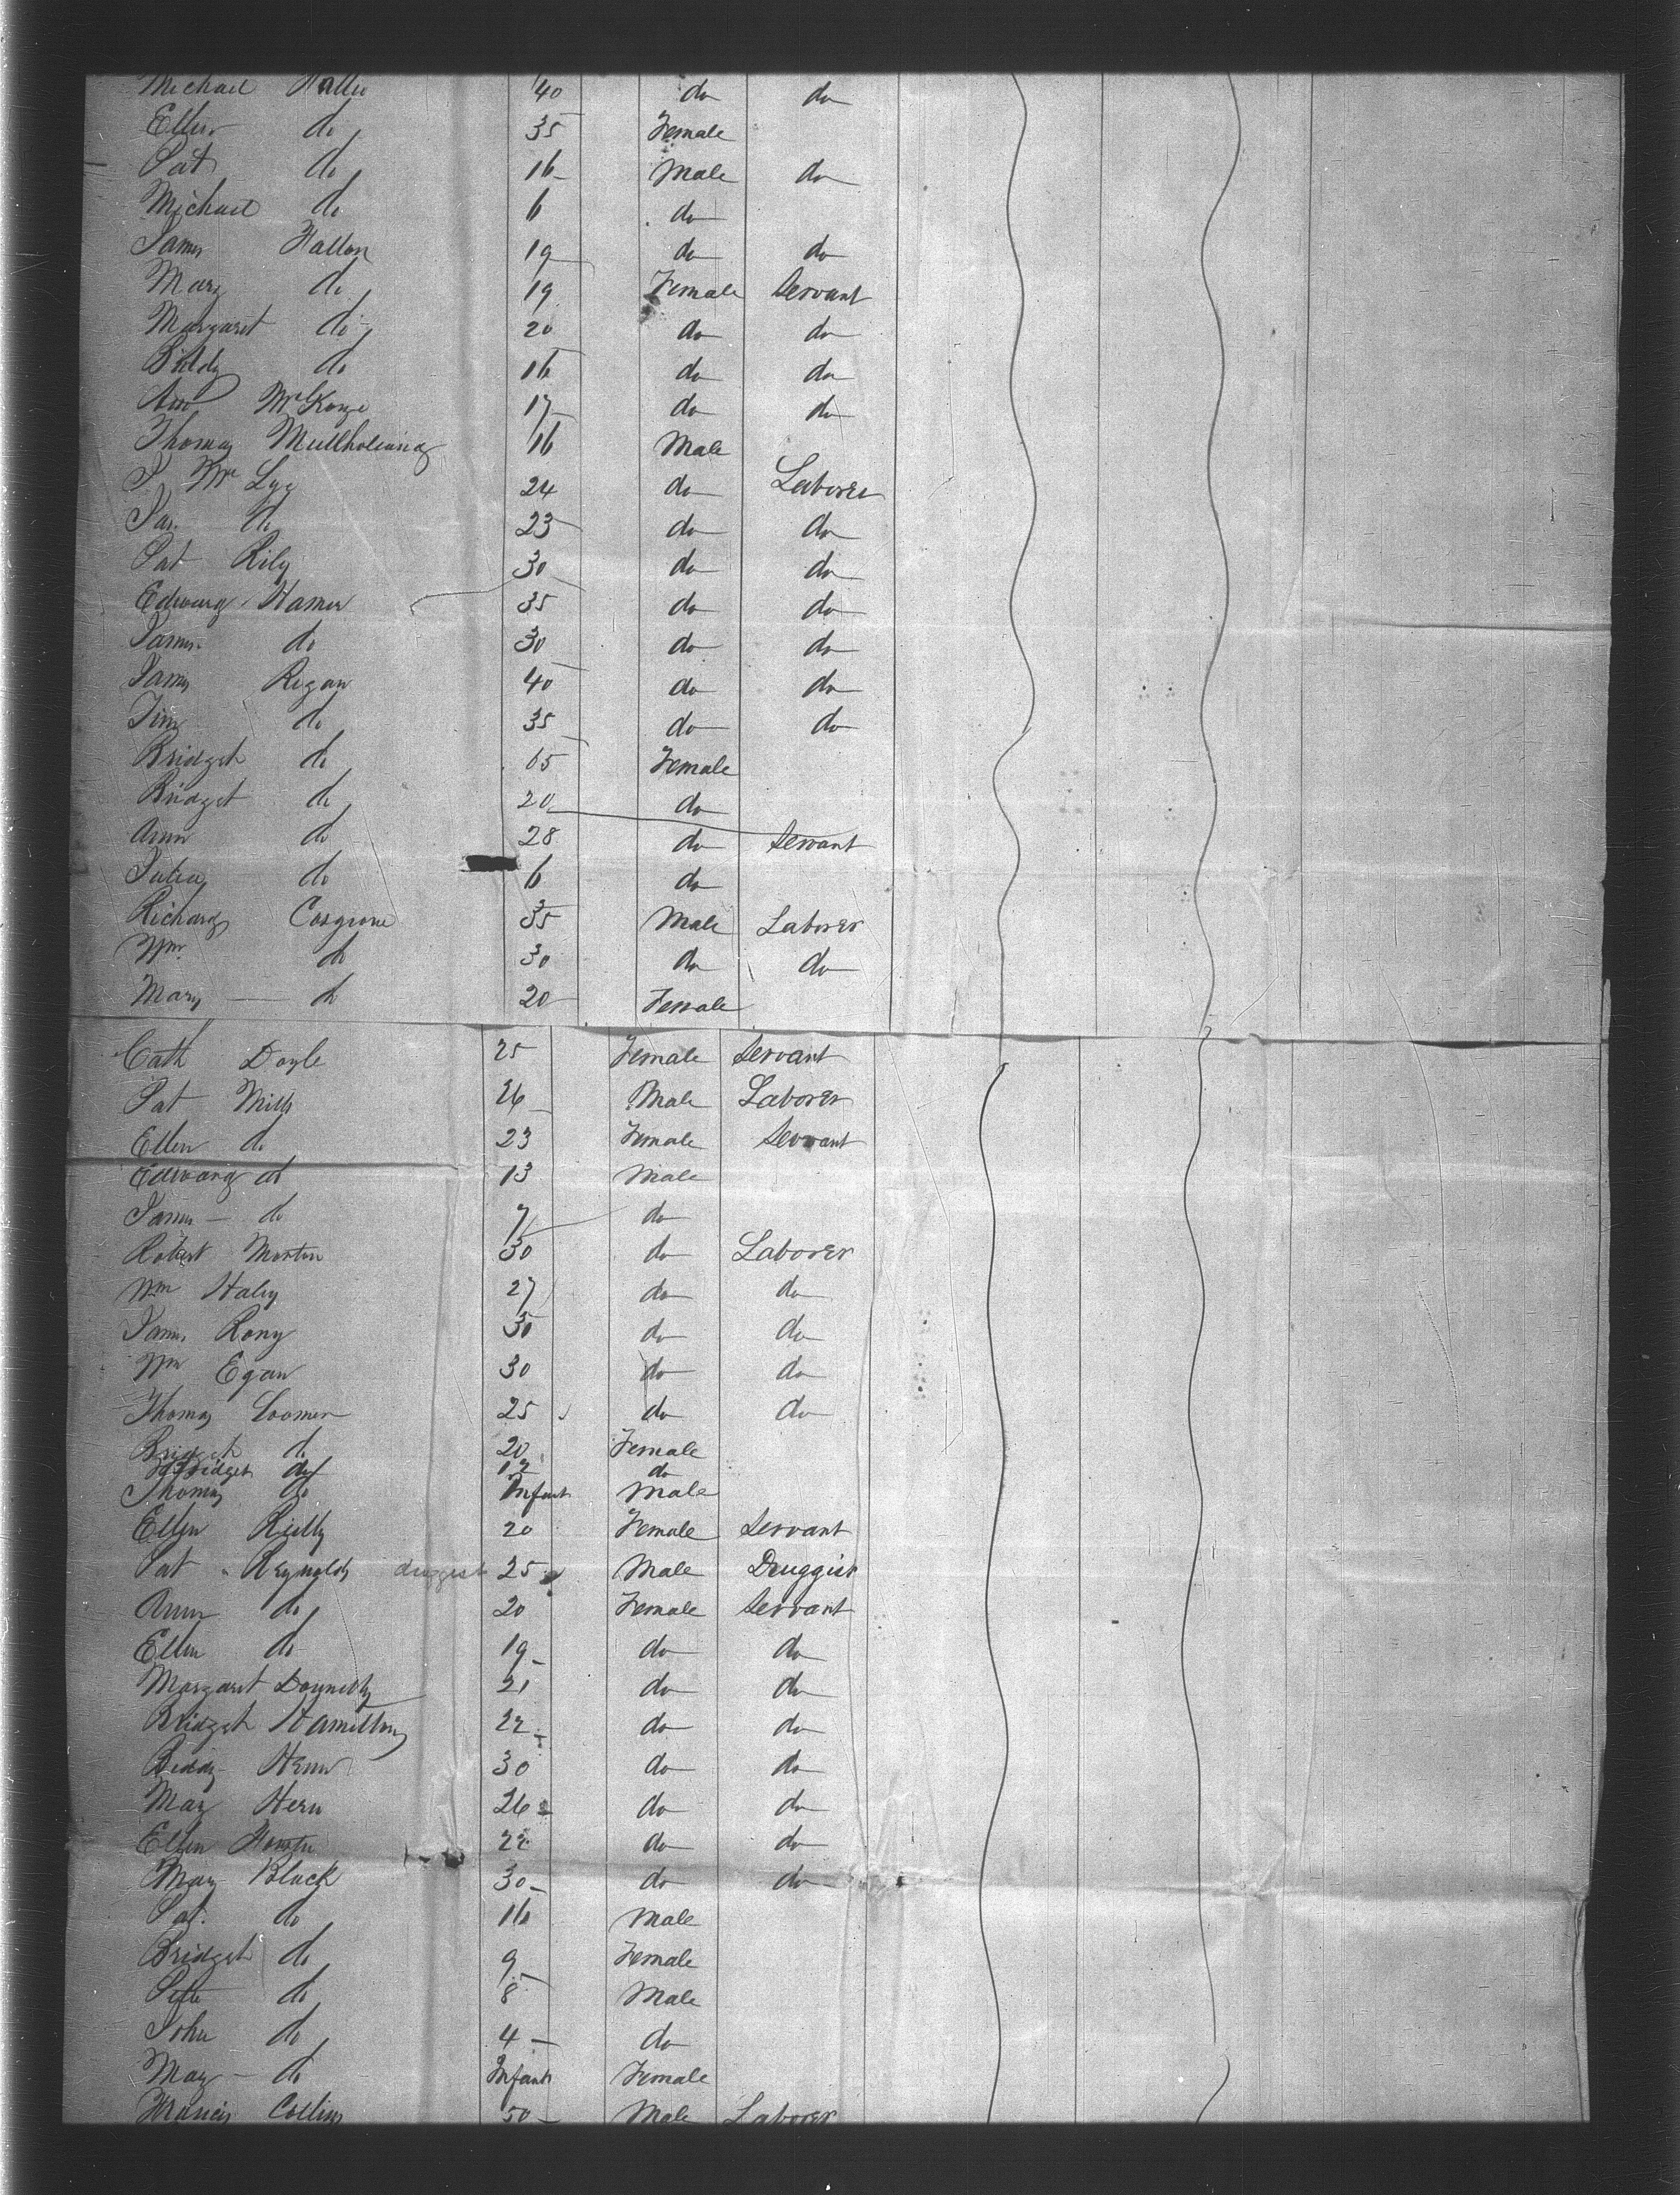 Michael Fallu 40 do do
Ellen do 35 Female
Pat do 16 Male do
Michael do 6 do
James Fallon 19 do do
Mary do 19 Female Servant
Margaret do 20 do do
Biddy do 16 do do
Ann 17 do do
Thomas Mullholeand 16 Male
24 do Laborer
do 23 do do
Pat Rily 30 do do
Edward Hamer 35 do do
James do 30 do do
James Regan 40 do do
Tim do 35 do do
Bridget do 65 Female
Bridget do 20 do
Ann do 28 do Servant
Julia do 6 do
Richard Cosgrove 35 Male Laborer
Wm do 30 do do
Mary do 20 Female
Cath Doyle 25 Female Servant
Pat Mills 26 Male Laborer
Ellen do 23 Female Servant
Edward do 13 Male
James do 7 do
Robert Morton 30 do Laborer
Wm Haley 27 do do
James Rony 30 do do
Wm Egan 30 do do
Thomas Loomer 25 do do
Bridget do 20 Female
Bridget do 12 do
Thomas do Infant Male
Ellen Reilly 20 Female Servant
Pat Reynolds druggist 25 Male Druggist
Ann do 20 Female Servant
Ellen do 19 do do
Margaret Doynelly 21 do do
Bridget Hamilton 22 do do
Biddy Hern 30 do do
Mary Hern 26 do do
Ellen 22 do do
Mary Black 30 do do
Pat. do 16 Male
Bridget do 9 Female
Peter do 8 Male
John do 4 do
Mary do Infant Female
Francis Collins 50 Male Laborer